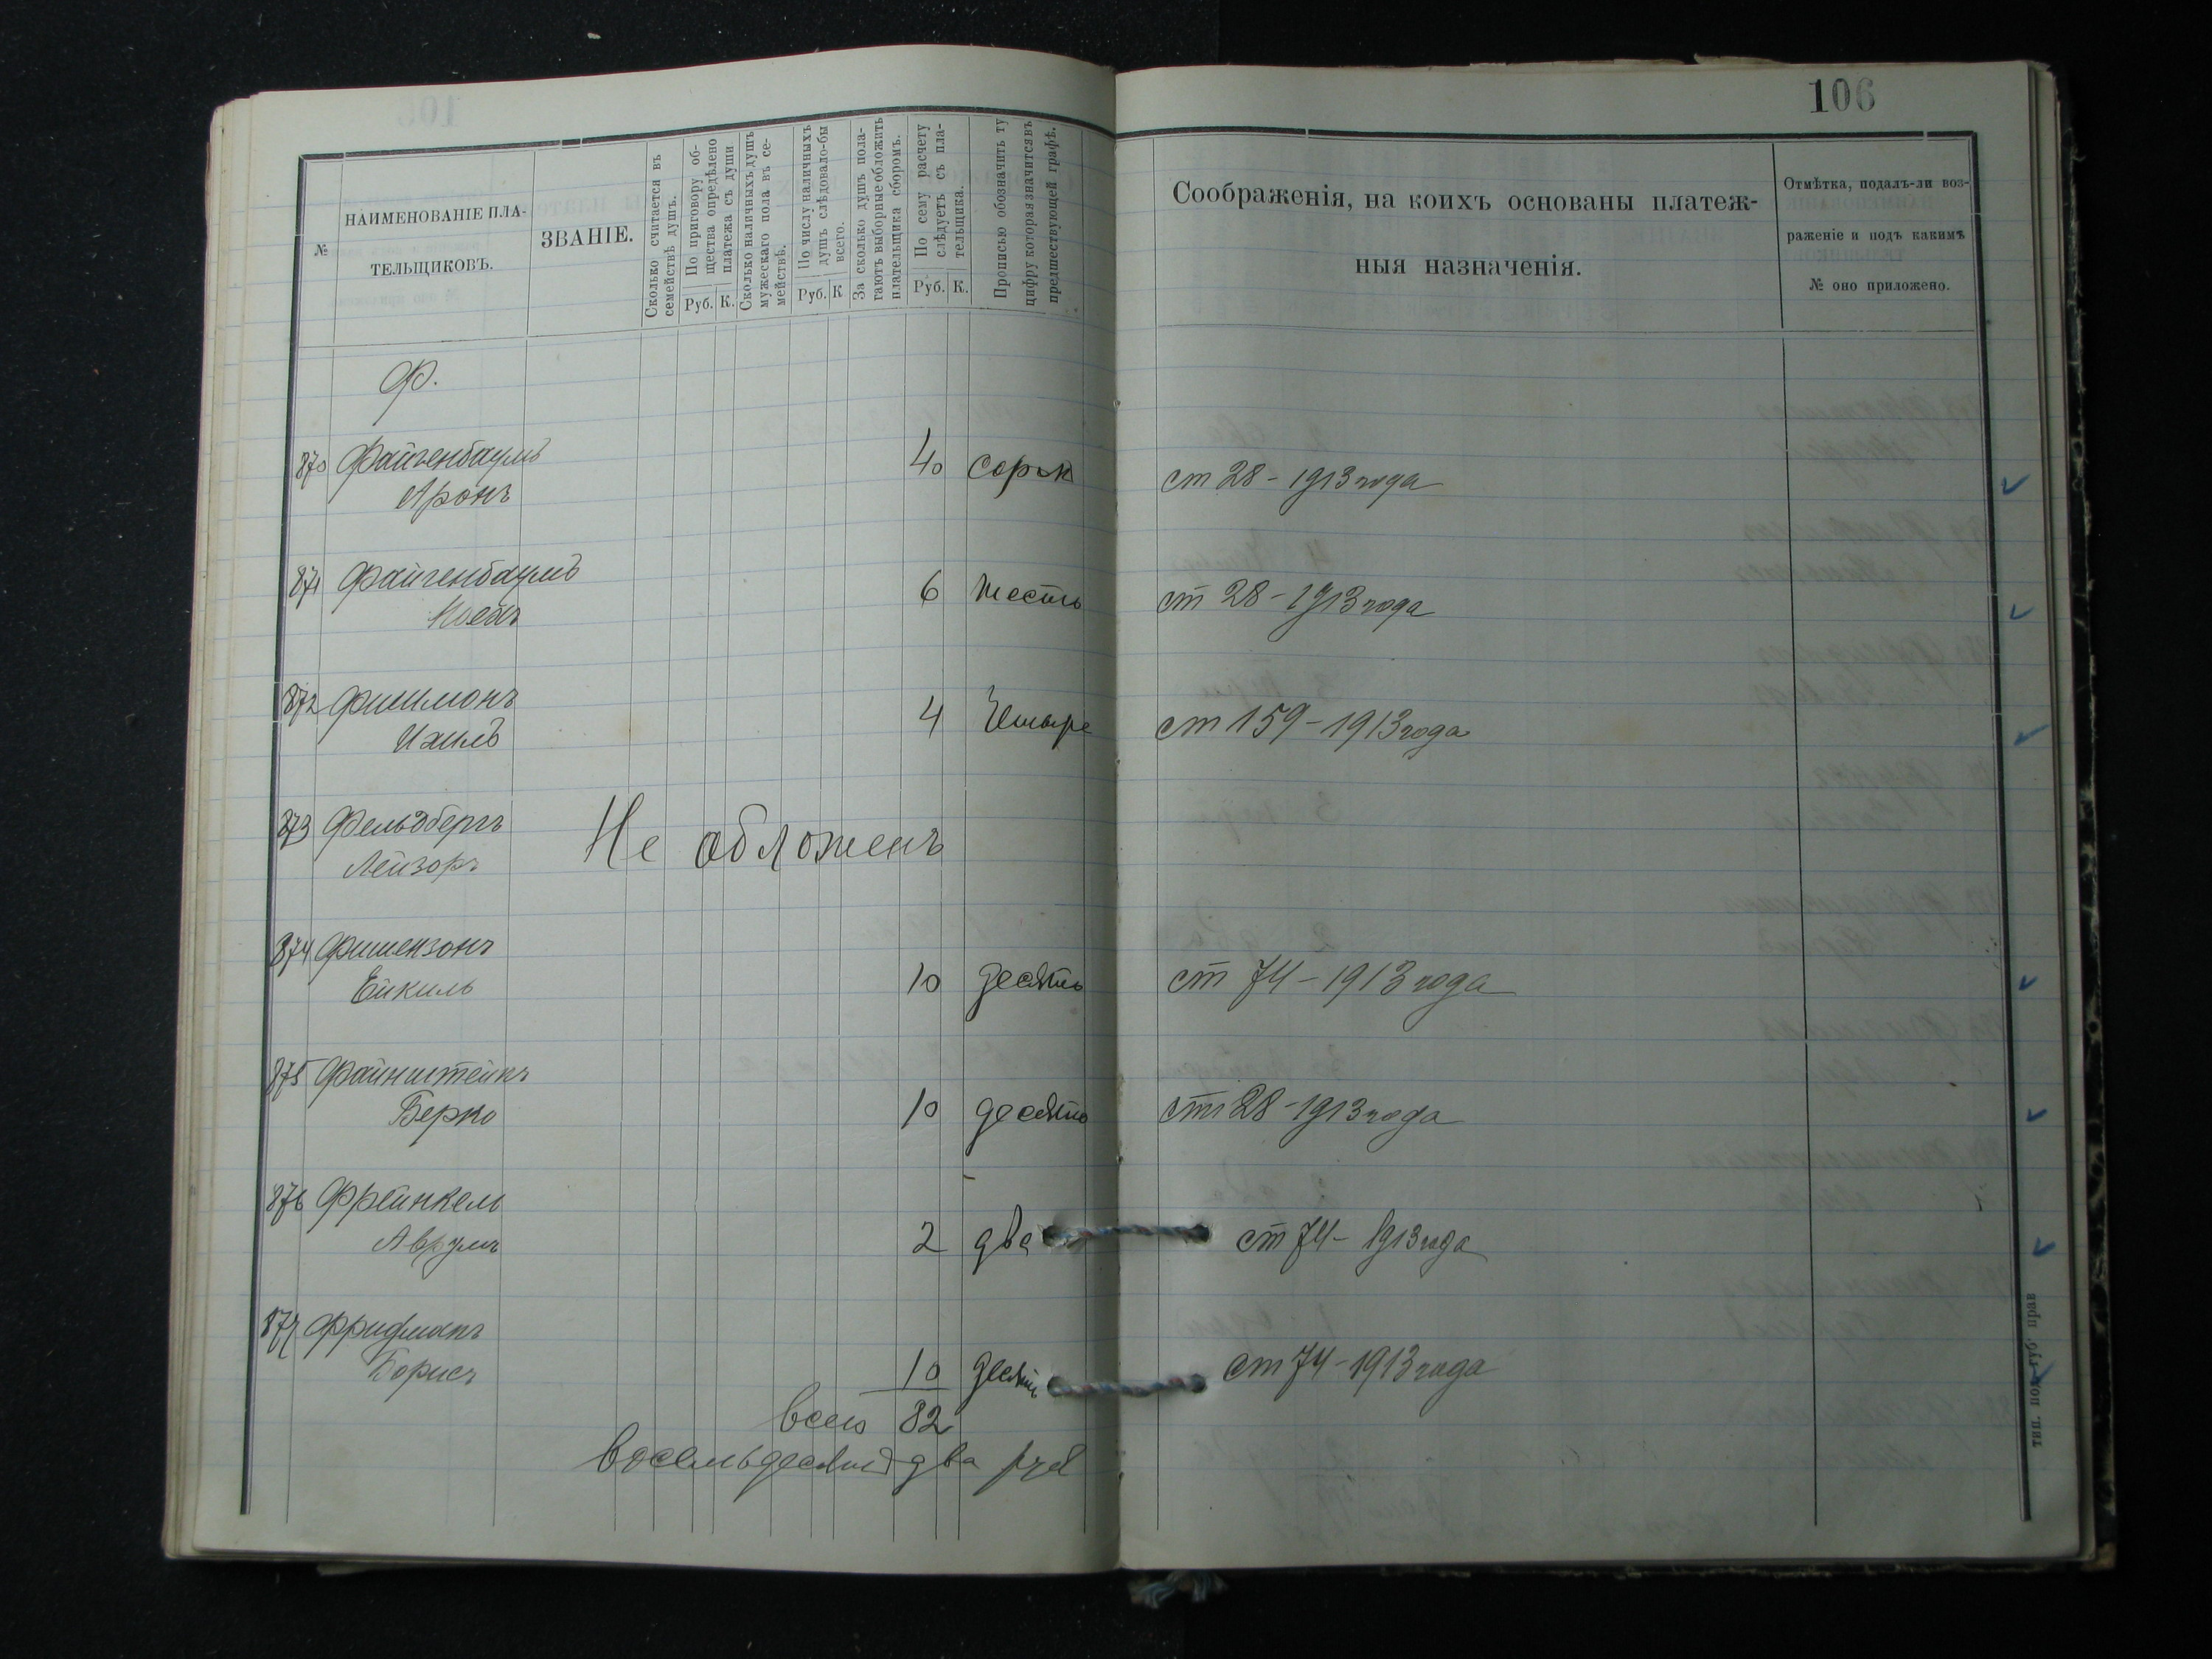 106
№
НАИМЕНОВАНІЕ ПЛА-
ТЕЛЬЩИКОВЪ.
ЗВАНІЕ.
Сколько считается въ
семействѣ душъ.
По приговору об-
щества опредѣлено
платежа съ души
Руб. К.
Сколько наличныхъ душъ
мужескаго пола въ се-
мействѣ.
По числу наличныхъ
душъ слѣдовало-бы
всего.
Руб. К
За сколько душъ пола-
гаютъ выборные обложить
плательщика сборомъ.
По сему расчету
слѣдуетъ съ пла-
тельщика.
Руб. К.
Прописью обозначить ту
цифру которая значится въ
предшествующей графѣ.
Соображенія, на коихъ основаны платеж-
ныя назначенія.
Отмѣтка, подалъ-ли воз-
раженіе и подъ какимъ
№ оно приложено.
Ф.
870 Файгенбаумъ
Аронъ 40 сорок ст 28 - 1913 года
871 Файгенбаумъ
6 шесть ст 28 - 1913 года
872 Фишимонъ
Ихилъ 4 Четыре ст 159 - 1913 года
873 Фельдбергъ
Лейзоръ Не обложенъ
874 Фишензонъ
Ейкиль 10 десять ст 74 - 1913 года
875 Файнштейнъ
Берко 10 десять ст 28 - 1913 года
876 Френкель
Аврумъ 2 два ст 74 - 1913 года
877 Фридманъ
Борисъ 10 десять ст 74 - 1913 года
всего 82
восемьдесятъ два руб
тип. под губ прав